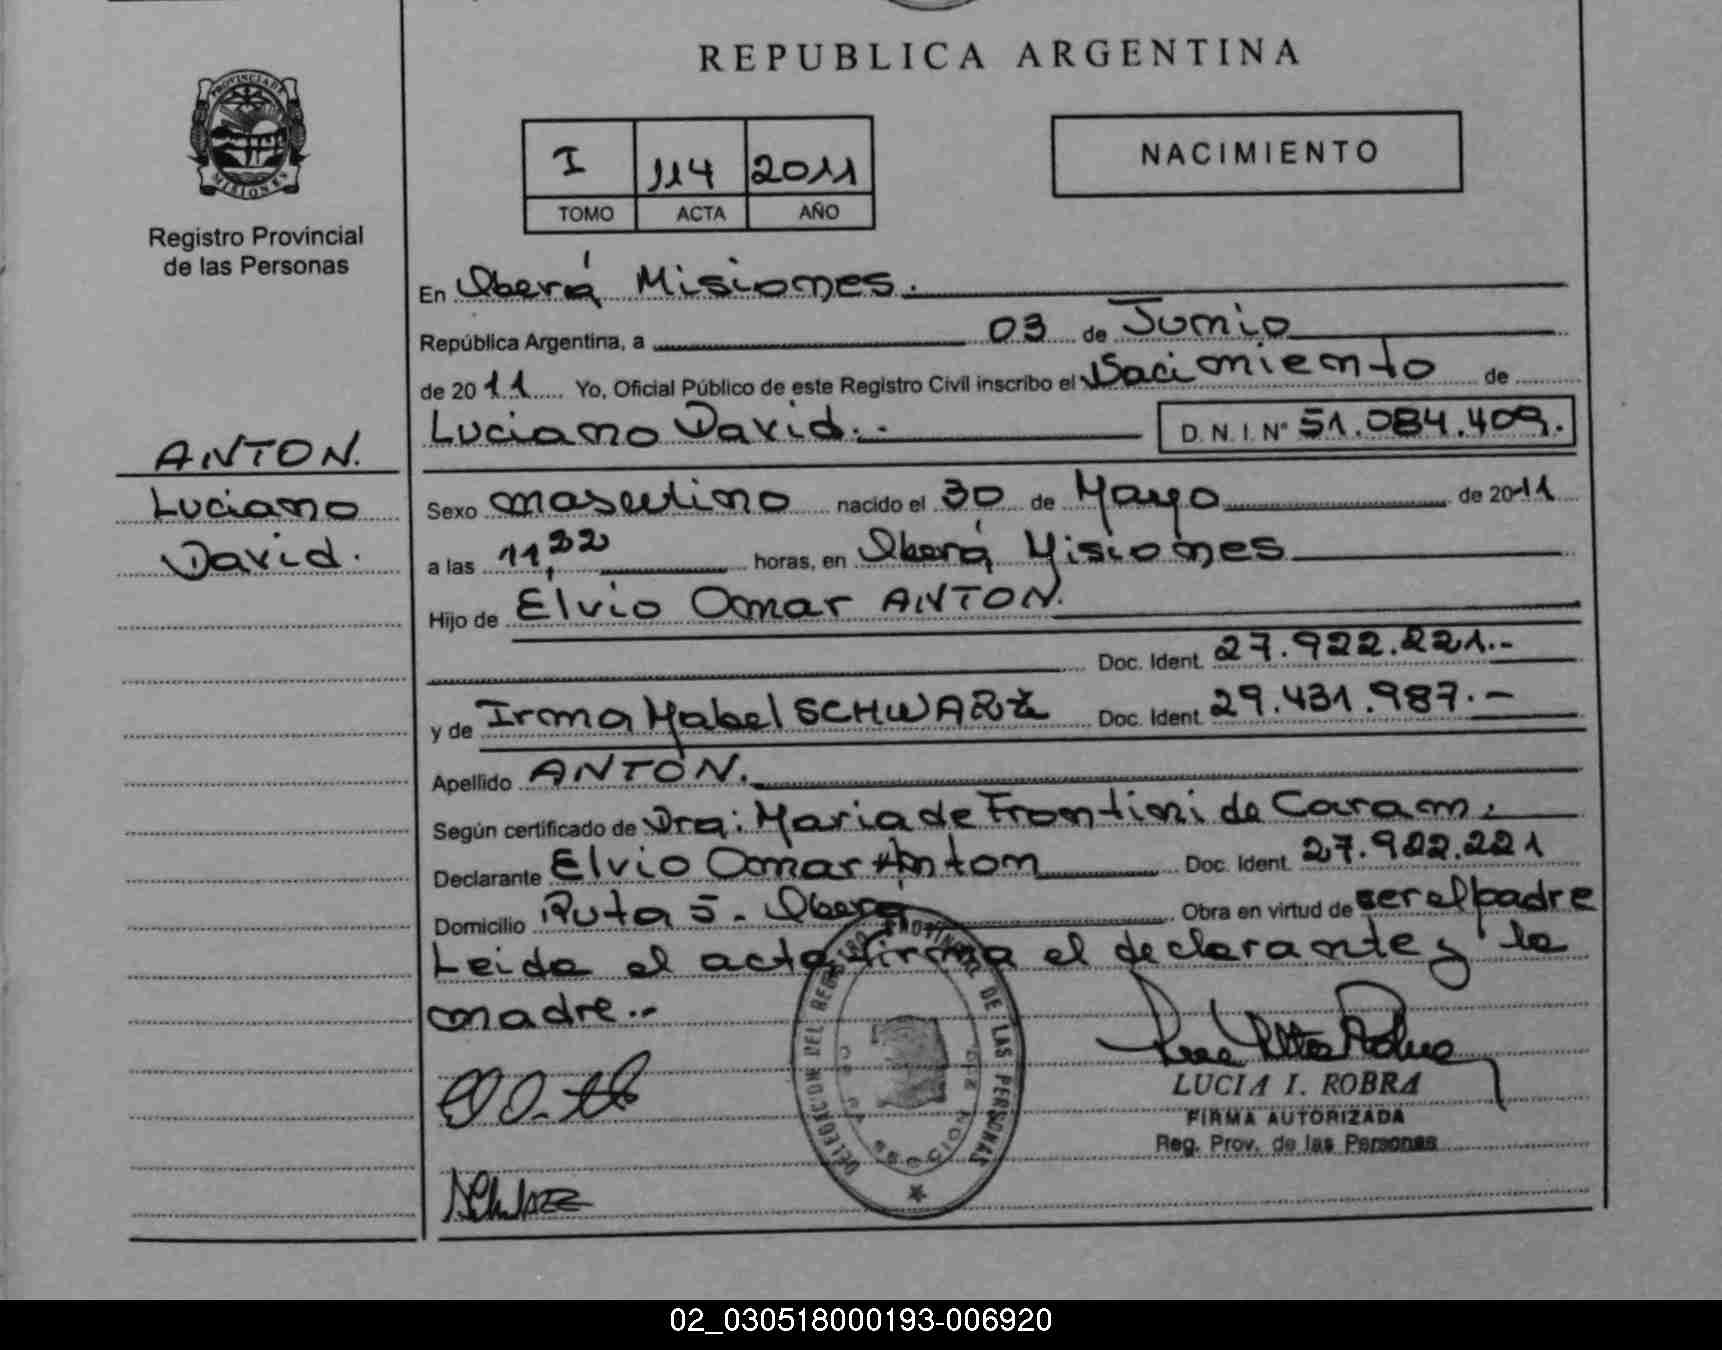 REPUBLICA ARGENTINA
PROVINCIA DE MISIONES
Registro Provincial
de las Personas
I 114 2011
TOMO ACTA AÑO
NACIMIENTO
ANTON.
Luciano
David.
En Oberá Misiones.
República Argentina, a 03 de Junio
de 2011 Yo, Oficial Público de este Registro Civil inscribo el Nacimiento de
Luciano David.- D.N.I. Nº 51.084.409.
Sexo masculino nacido el 30 de Mayo de 2011
a las 11,22 horas, en Oberá Misiones
Hijo de Elvio Omar ANTON.
Doc. Ident. 27.922.221.-
y de Irma Mabel SCHWARZ Doc. Ident. 29.431.987.-
Apellido ANTON.
Según certificado de Dra: Maria de Frontini de Caram.
Declarante Elvio Omar Anton Doc. Ident. 27.922.221
Domicilio Ruta 5 - Oberá Obra en virtud de ser el padre
Leida el acta firma el declarante y la
madre.-
DELEGACION DEL REGISTRO PROVINCIAL DE LAS PERSONAS
LUCIA I. ROBRA
FIRMA AUTORIZADA
Reg. Prov. de las Personas
02_030518000193-006920